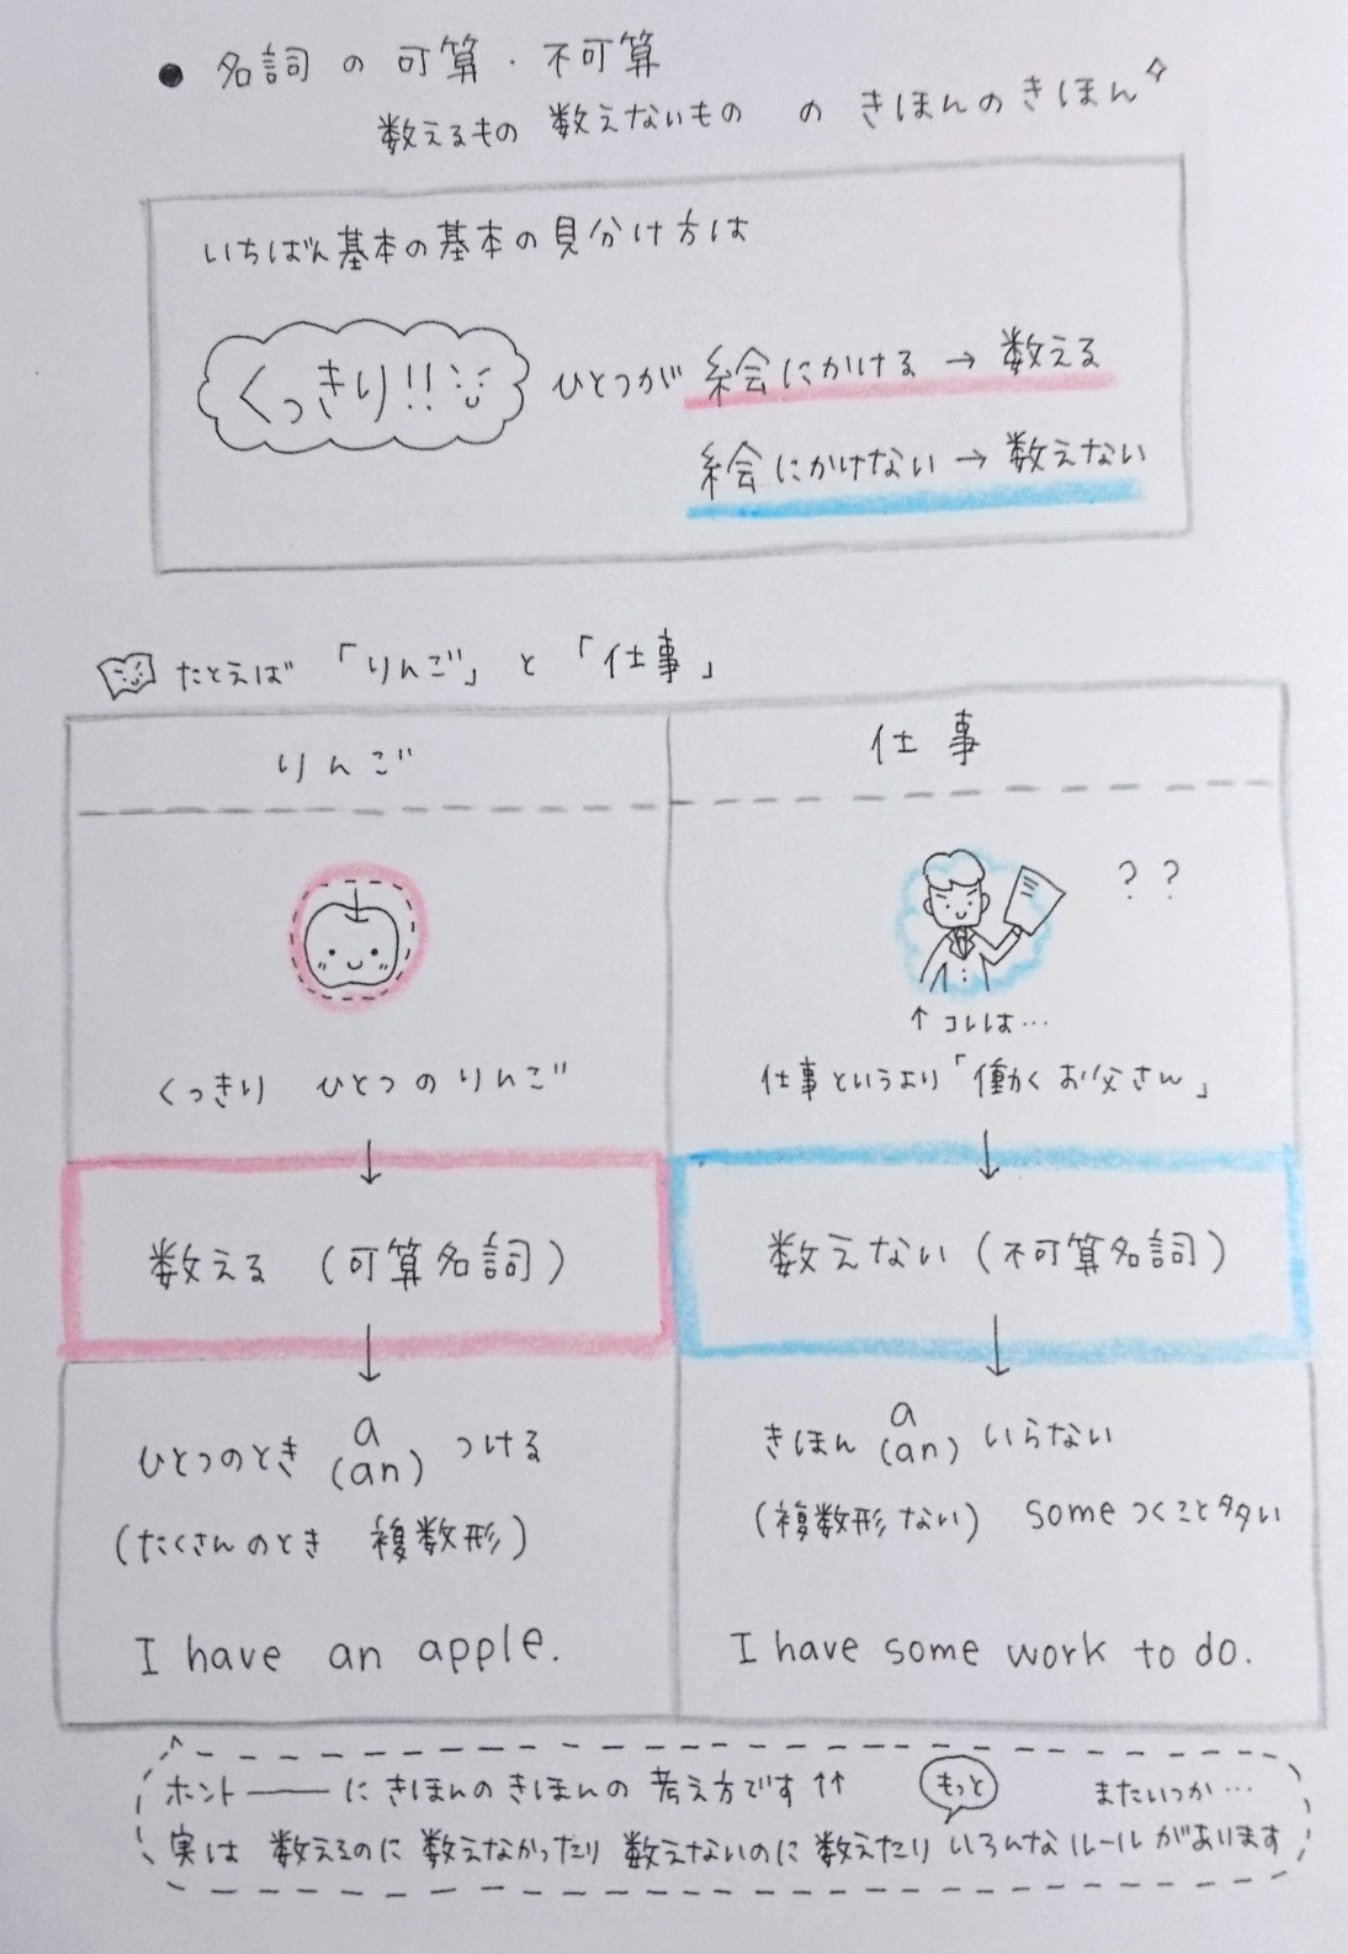 ● 名詞の可算・不可算
数えるもの 数えないもの のきほんのきほん
いちばん基本の基本の見分け方は
くっきり!! ひとつが 絵にかける → 数える
絵にかけない → 数えない
たとえば 「りんご」と「仕事」
りんご
仕事
? ?
↑ コレは…
くっきり ひとつのりんご
仕事というより「働くお父さん」
↓
↓
数える (可算名詞)
数えない (不可算名詞)
↓
↓
ひとつのとき a (an) つける
(たくさんのとき 複数形)
I have an apple.
きほん a (an) いらない
(複数形ない) someつくこと多い
I have some work to do.
ホント――にきほんのきほんの考え方です↑↑ もっと またいつか…
実は 数えるのに数えなかったり 数えないのに数えたり いろんなルールがあります